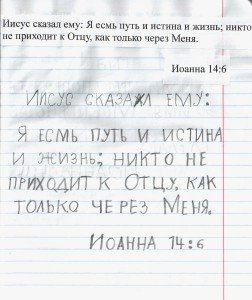 Иисус сказал ему: Я есмь путь и истина и жизнь; никто
не приходит к Отцу, как только через Меня.
Иоанна 14:6
Иисус сказал ему:
Я есмь путь и истина
и жизнь; никто не
приходит к Отцу, как
только через Меня.
Иоанна 14:6